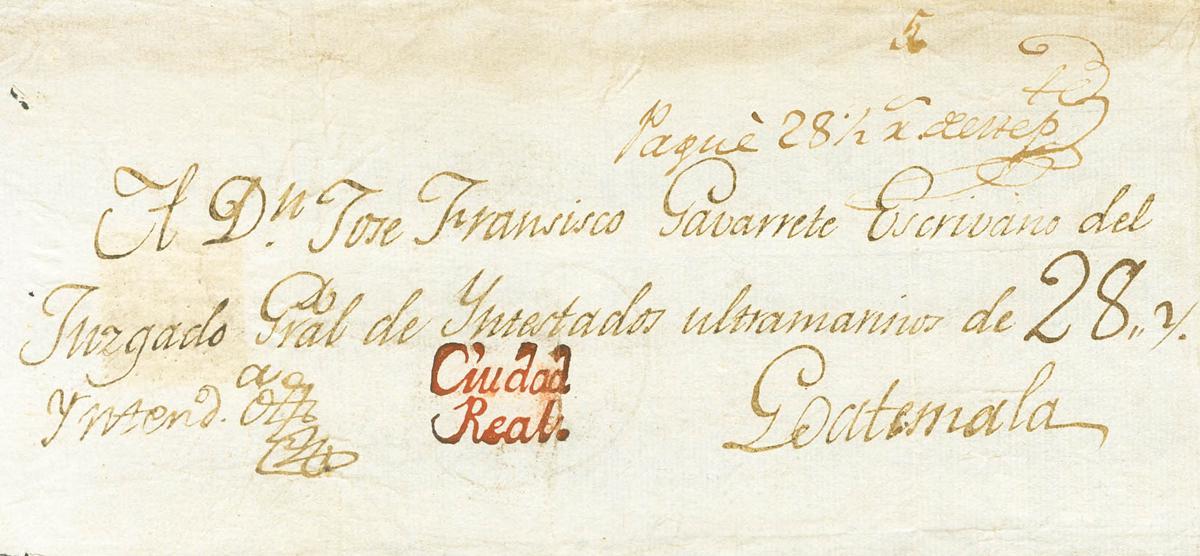 Paguè 28 1/2 r.
A Dn. Jose Fransisco Gavarrete Escrivano del
Juzgado Gral de Yntestados ultramarinos de 28,,
Yntend.a
Ciudad
Real.
Goatemala